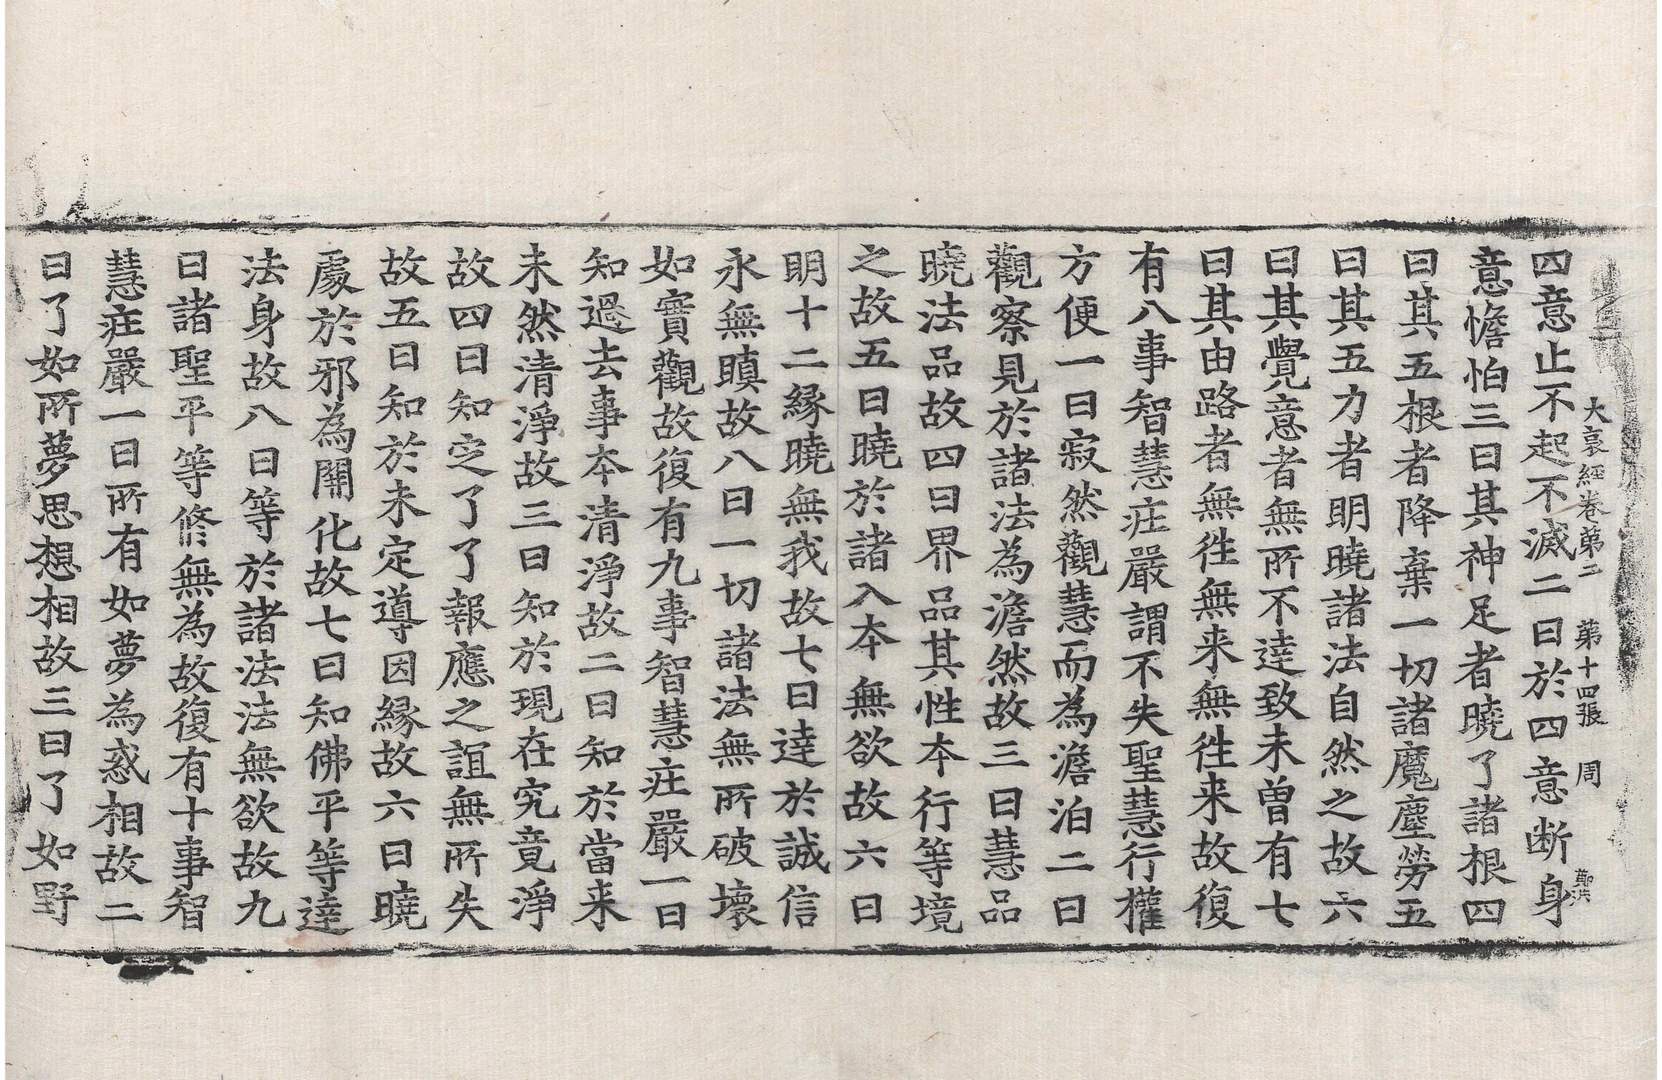 大哀經卷第二 第十四張 周 鄭洪
四意止不起不滅二曰於四意断身
意憺怕三曰其神足者曉了諸根四
曰其五根者降棄一切諸魔塵勞五
曰其五力者明曉諸法自然之故六
曰其覺意者無所不達致未曾有七
曰其由路者無徃無来無徃来故復
有八事智慧庄嚴謂不失聖慧行權
方便一曰寂然觀慧而為澹泊二曰
觀察見於諸法為澹然故三曰慧品
曉法品故四曰界品其性夲行等境
之故五曰曉於諸入夲無欲故六曰
明十二緣曉無我故七曰達於誠信
永無瞋故八曰一切諸法無所破壞
如實觀故復有九事智慧庄嚴一曰
知過去事夲清淨故二曰知於當来
未然清淨故三曰知於現在究竟淨
故四曰知㝎了了報應之誼無所失
故五曰知於未定導因緣故六曰曉
處於邪為開化故七曰知佛平等達
法身故八曰等於諸法法無欲故九
曰諸聖平等脩無為故復有十事智
慧庄嚴一曰所有如夢為惑相故二
曰了如所夢思想相故三曰了如野